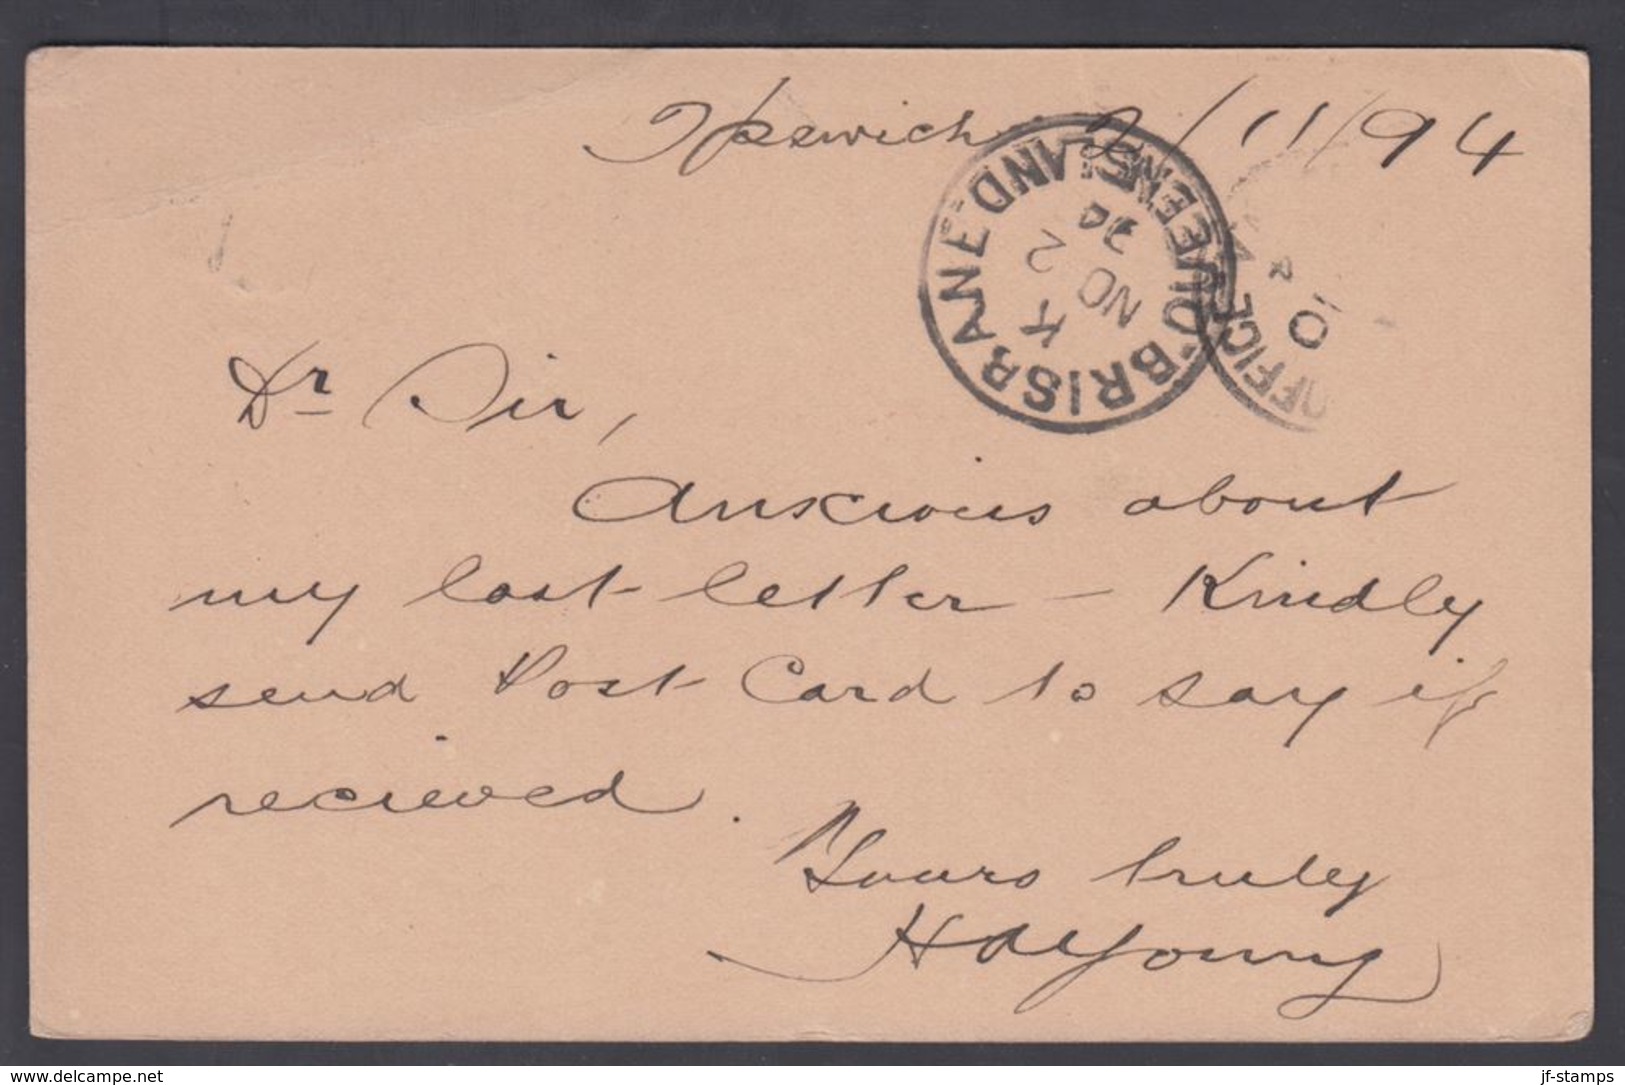 Ipswich 2/11/94
BRISBANE QUEENSLAND
K
NO 2
94
OFFICE
10
Dr Sir,
Anxcious about
my last letter - Kindly
send Post Card to say if
recieved.
Yours truly
HAYoung
delcampe.net
jf-stamps